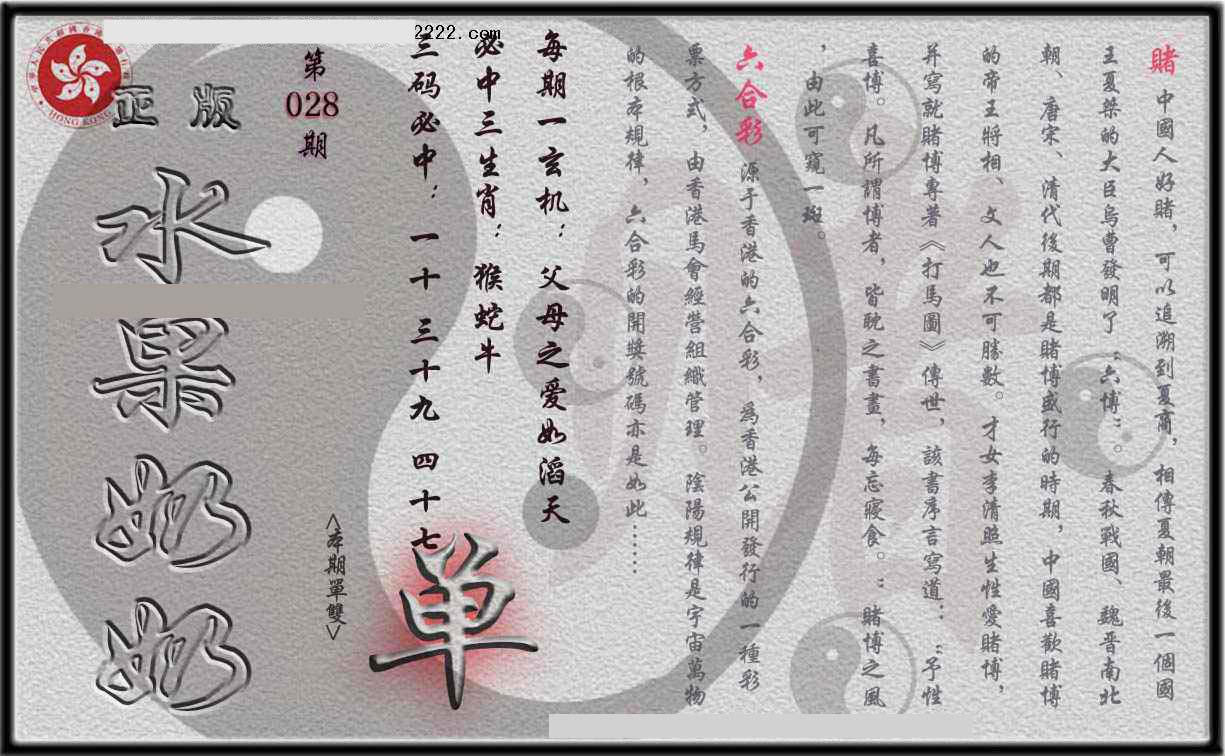 2222.com
賭 中國人好賭，可以追溯到夏商，相傳夏朝最後一個國
王夏桀的大臣烏曹發明了“六博”。春秋戰國、魏晋南北
朝、唐宋、清代後期都是賭博盛行的時期，中國喜歡賭博
的帝王將相、文人也不可勝數。才女李清照生性愛賭博，
并寫就賭博專著《打馬圖》傳世，該書序言寫道：“予性
喜博。凡所謂博者，皆耽之書畫，每忘寢食。”賭博之風
，由此可窺一斑。
六合彩 源于香港的六合彩，為香港公開發行的一種彩
票方式，由香港馬會經營組織管理。陰陽規律是宇宙萬物
的根本規律，六合彩的開獎號碼亦是如此……
每期一玄机：父母之爱如滔天
必中三生肖：猴蛇牛
三码必中：一十 三十九 四十七
單
<本期單雙>
第
028
期
正版
水果奶奶
HONG KONG